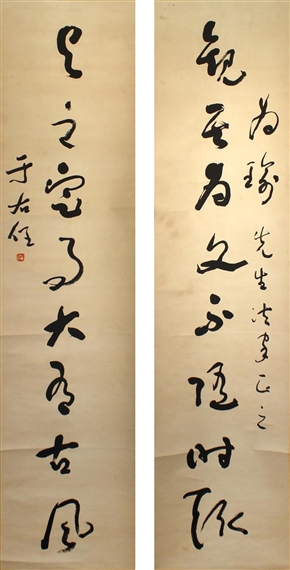 為瑜先生法家正之
觀其為文不隨時趣
與之定事大有古風
于右任